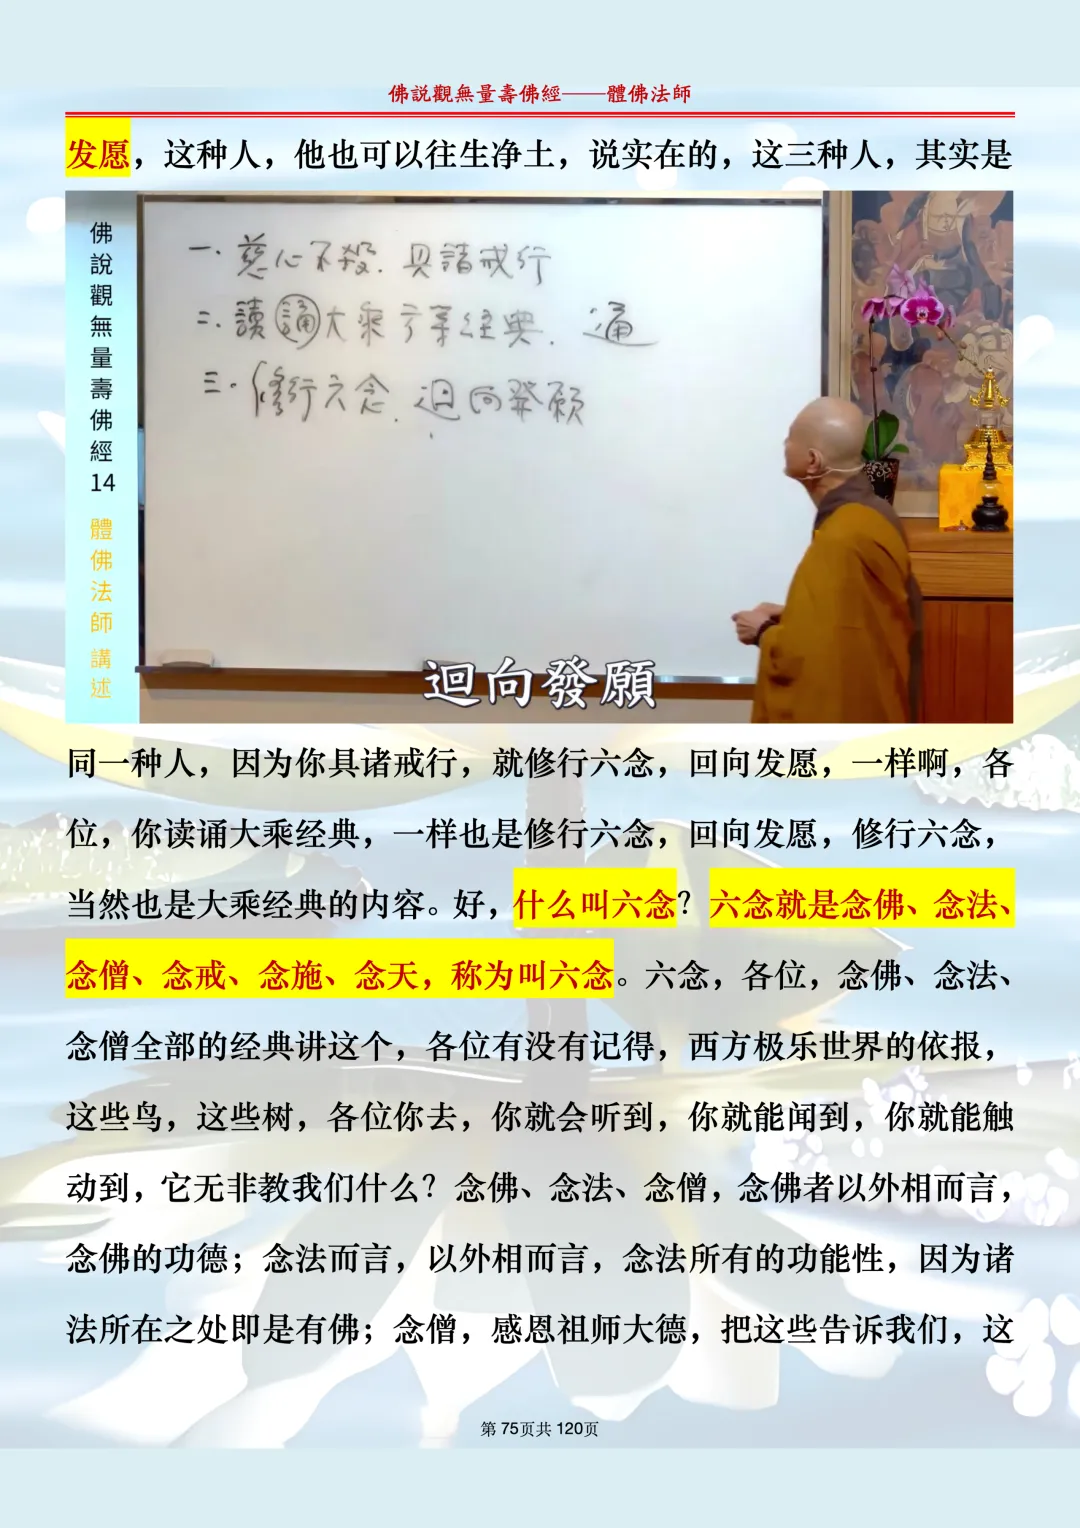 佛説觀無量壽佛經——體佛法師
发愿，这种人，他也可以往生净土，说实在的，这三种人，其实是
佛說觀無量壽佛經14
體佛法師 講述
一．慈心不殺．具諸戒行
二．讀誦大乘方等經典．通
三．修行六念．迴向發願
迴向發願
同一种人，因为你具诸戒行，就修行六念，回向发愿，一样啊，各
位，你读诵大乘经典，一样也是修行六念，回向发愿，修行六念，
当然也是大乘经典的内容。好，什么叫六念？六念就是念佛、念法、
念僧、念戒、念施、念天，称为叫六念。六念，各位，念佛、念法、
念僧全部的经典讲这个，各位有没有记得，西方极乐世界的依报，
这些鸟，这些树，各位你去，你就会听到，你就能闻到，你就能触
动到，它无非教我们什么？念佛、念法、念僧，念佛者以外相而言，
念佛的功德；念法而言，以外相而言，念法所有的功能性，因为诸
法所在之处即是有佛；念僧，感恩祖师大德，把这些告诉我们，这
第 75页共 120页